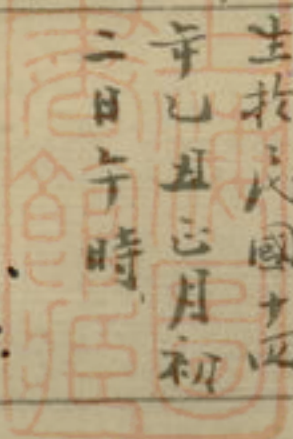 生於民國十四
年乙丑正月初
二日午時